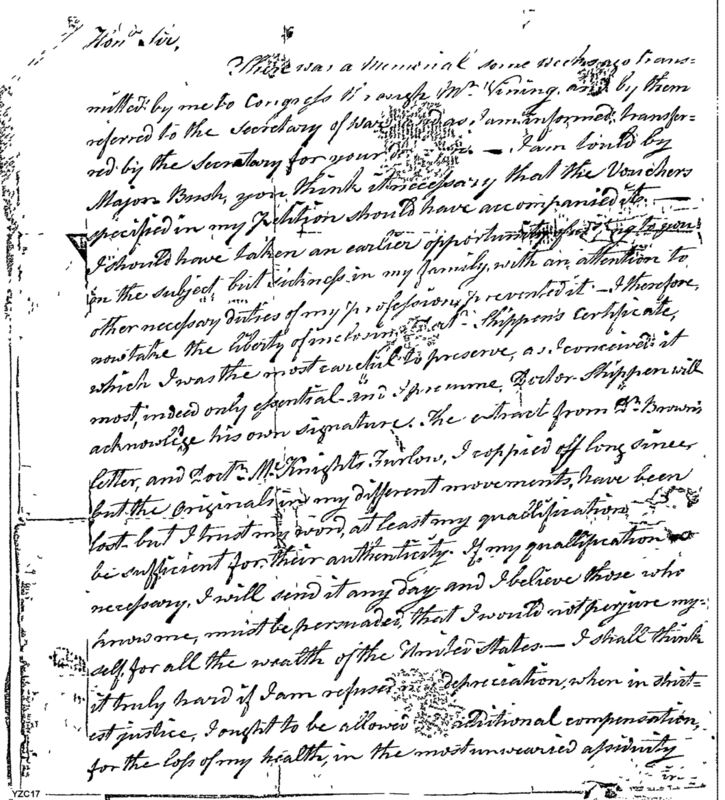 Hon.d Sir,
There was a Memorial some weeks ago trans=
mitted by me to Congress through Mr. Vining, and by them
referred to the Secretary of War and as I am informed, transfer=
red by the Secretary for your — I am tould by
Major Bush, you think it necessary that the Vouchers
specified in my Petition should have accompanied it. —
I should have taken an earlier opportunity to you
on the subject, but sickness in my family, with an attention to
other necessary duties of my profession, prevented it — I therefore,
now take the liberty of inclosing Shippen's certificate,
which I was the most careful to preserve, as I conceived it
most, indeed only essential and I presume, Doctor Shippen will
acknowlege his own signature. The extract from Dr. Brown's
letter, and Doctr. McKnights Furlow, I coppied off long since,
but the originals in my different movements, have been
lost but I trust my word, at least my quallification
be sufficient for their authenticity. If my quallification
necessary, I will send it any day, and I believe those who
know me, must be persuaded, that I would not perjure my=
self, for all the wealth of the United States — I shall think
it truly hard if I am refused depreciation, when in strict=
est justice, I ought to be allowed additional compensation,
for the loss of my health, in the most unwearied assiduity
YZC17